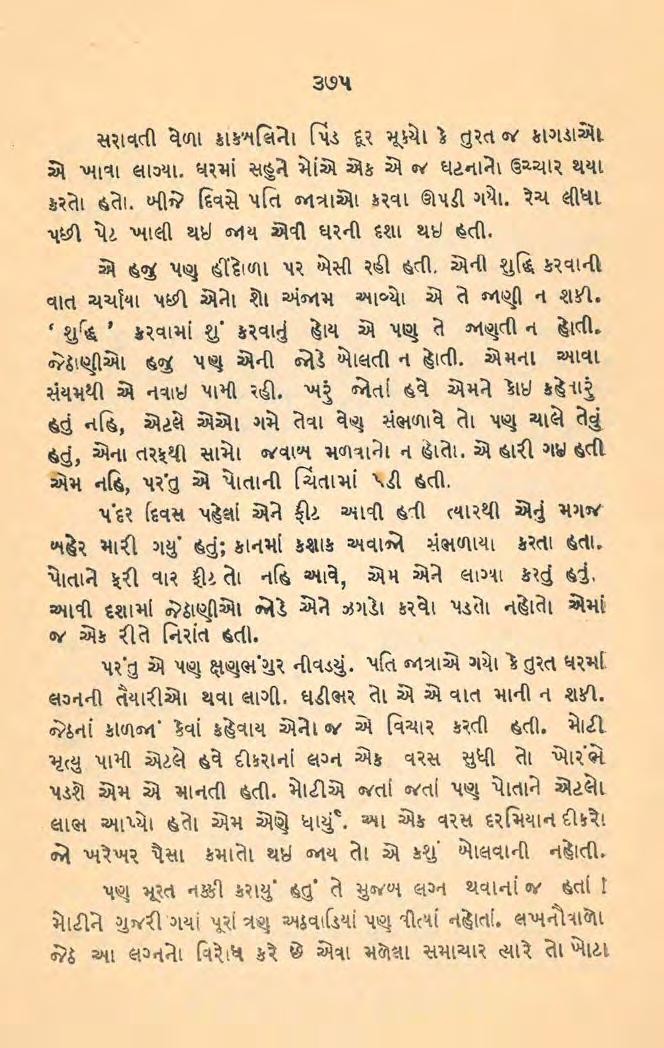 ૩૭૫
સરાવતી વેળા કાકબલિનો પિંડ દૂર મૂક્યો કે તુરત જ કાગડાઓ
એ ખાવા લાગ્યા. ઘરમાં સહુને મોંએ એક એ જ ઘટનાનો ઉચ્ચાર થયા
કરતો હતો. બીજે દિવસે પતિ જાત્રાઓ કરવા ઊપડી ગયો. રેચ લીધા
પછી પેટ ખાલી થઈ જાય એવી ઘરની દશા થઈ હતી.
એ હજુ પણ હીંદોળા પર બેસી રહી હતી. એની શુદ્ધિ કરવાની
વાત ચર્ચાયા પછી એનો શો અંજામ આવ્યો એ તે જાણી ન શકી.
‘ શુદ્ધિ ’ કરવામાં શું કરવાનું હોય એ પણ તે જાણતી ન હોતી.
જેઠાણીઓ હજુ પણ એની જોડે બોલતી ન હોતી. એમના આવા
સંયમથી એ નવાઈ પામી રહી. ખરૂં જોતાં હવે એમને કોઈ કહેનારું
હતું નહિ, એટલે એઓ ગમે તેવા વેણ સંભળાવે તો પણ ચાલે તેવું
હતું, એના તરફથી સામો જવાબ મળવાનો ન હોતો. એ હારી ગઈ હતી
એમ નહિ, પરંતુ એ પોતાની ચિંતામાં પડી હતી.
પંદર દિવસ પહેલાં એને ફીટ આવી હતી ત્યારથી એનું મગજ
બહેર મારી ગયું હતું; કાનમાં કશાક અવાજો સંભળાયા કરતા હતા.
પોતાને ફરી વાર ફીટ તો નહિ આવે, એમ એને લાગ્યા કરતું હતું.
આવી દશામાં જેઠાણીઓ જોડે એને ઝગડો કરવો પડતો નહોતો એમાં
જ એક રીતે નિરાંત હતી.
પરંતુ એ પણ ક્ષણભંગુર નીવડ્યું. પતિ જાત્રાએ ગયો કે તુરત ઘરમાં
લગ્નની તૈયારીઓ થવા લાગી. ઘડીભર તો એ એ વાત માની ન શકી.
જેઠનાં કાળજાં કેવાં કહેવાય એનો જ એ વિચાર કરતી હતી. મોટી
મૃત્યુ પામી એટલે હવે દીકરાનાં લગ્ન એક વરસ સુધી તો ખોરંભે
પડશે એમ એ માનતી હતી. મોટીએ જતાં જતાં પણ પોતાને એટલો
લાભ આપ્યો હતો એમ એણે ધાર્યું. આ એક વરસ દરમિયાન દીકરો
જો ખરેખર પૈસા કમાતો થઈ જાય તો એ કશું બોલવાની નહોતી.
પણ મૂરત નક્કી કરાયું હતું તે મુજબ લગ્ન થવાનાં જ હતાં !
મોટીને ગુજરી ગયાં પૂરાં ત્રણ અઠવાડિયાં પણ વીત્યાં નહોતાં. લખનૌવાળો
જેઠ આ લગ્નનો વિરોધ કરે છે એવા મળેલા સમાચાર ત્યારે તો ખોટા